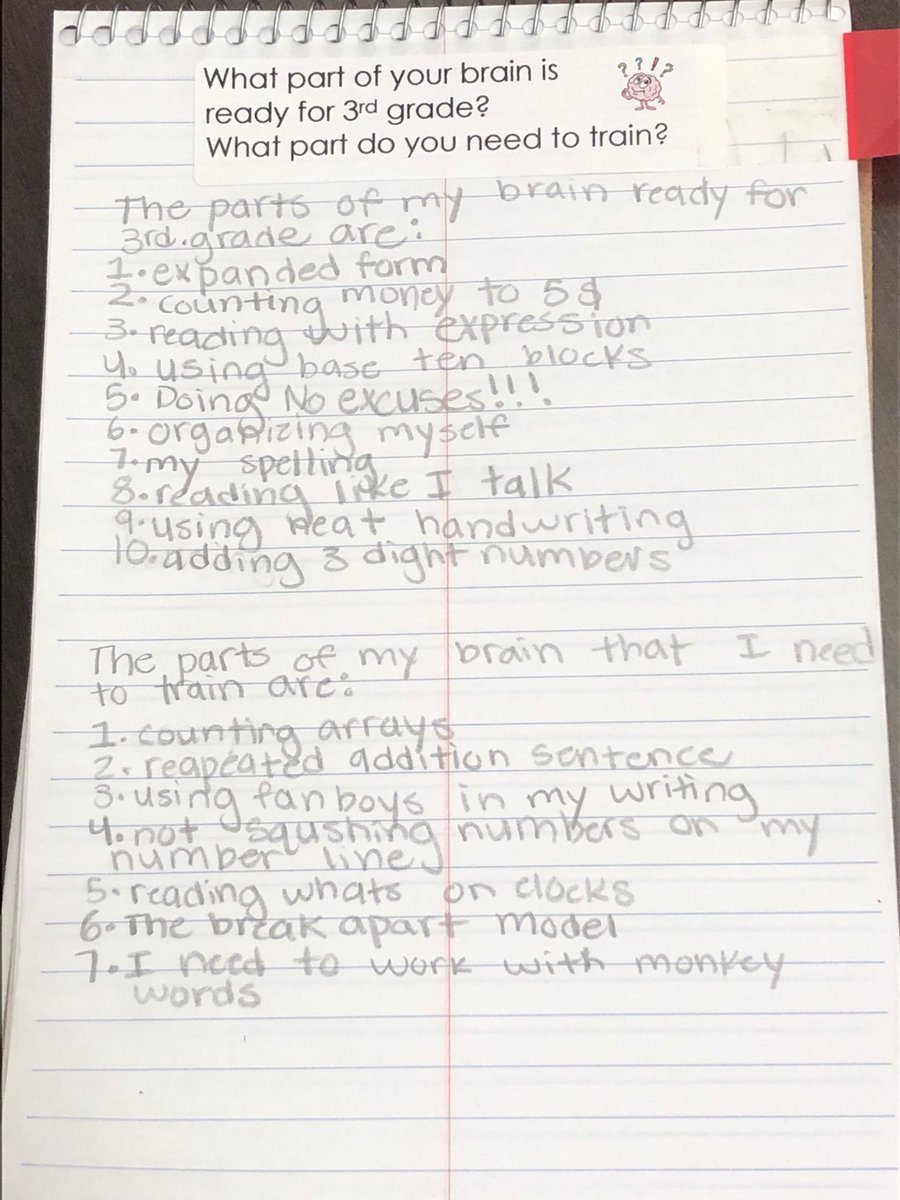 What part of your brain is
ready for 3rd grade?
What part do you need to train?
? ? ! ?
The parts of my brain ready for
3rd.grade are:
1.expanded form
2.counting money to 5$
3.reading with expression
4.using base ten blocks
5.Doing No excuses!!!
6.organizing myself
7.my spelling
8.reading like I talk
9.using neat handwriting
10.adding 3 dight numbers
The parts of my brain that I need
to train are:
1.counting arrays
2.reapeated addition sentence
3.using fanboys in my writing
4.not squshing numbers on my
number line
5.reading whats on clocks
6.The break apart model
7.I need to work with monkey
words